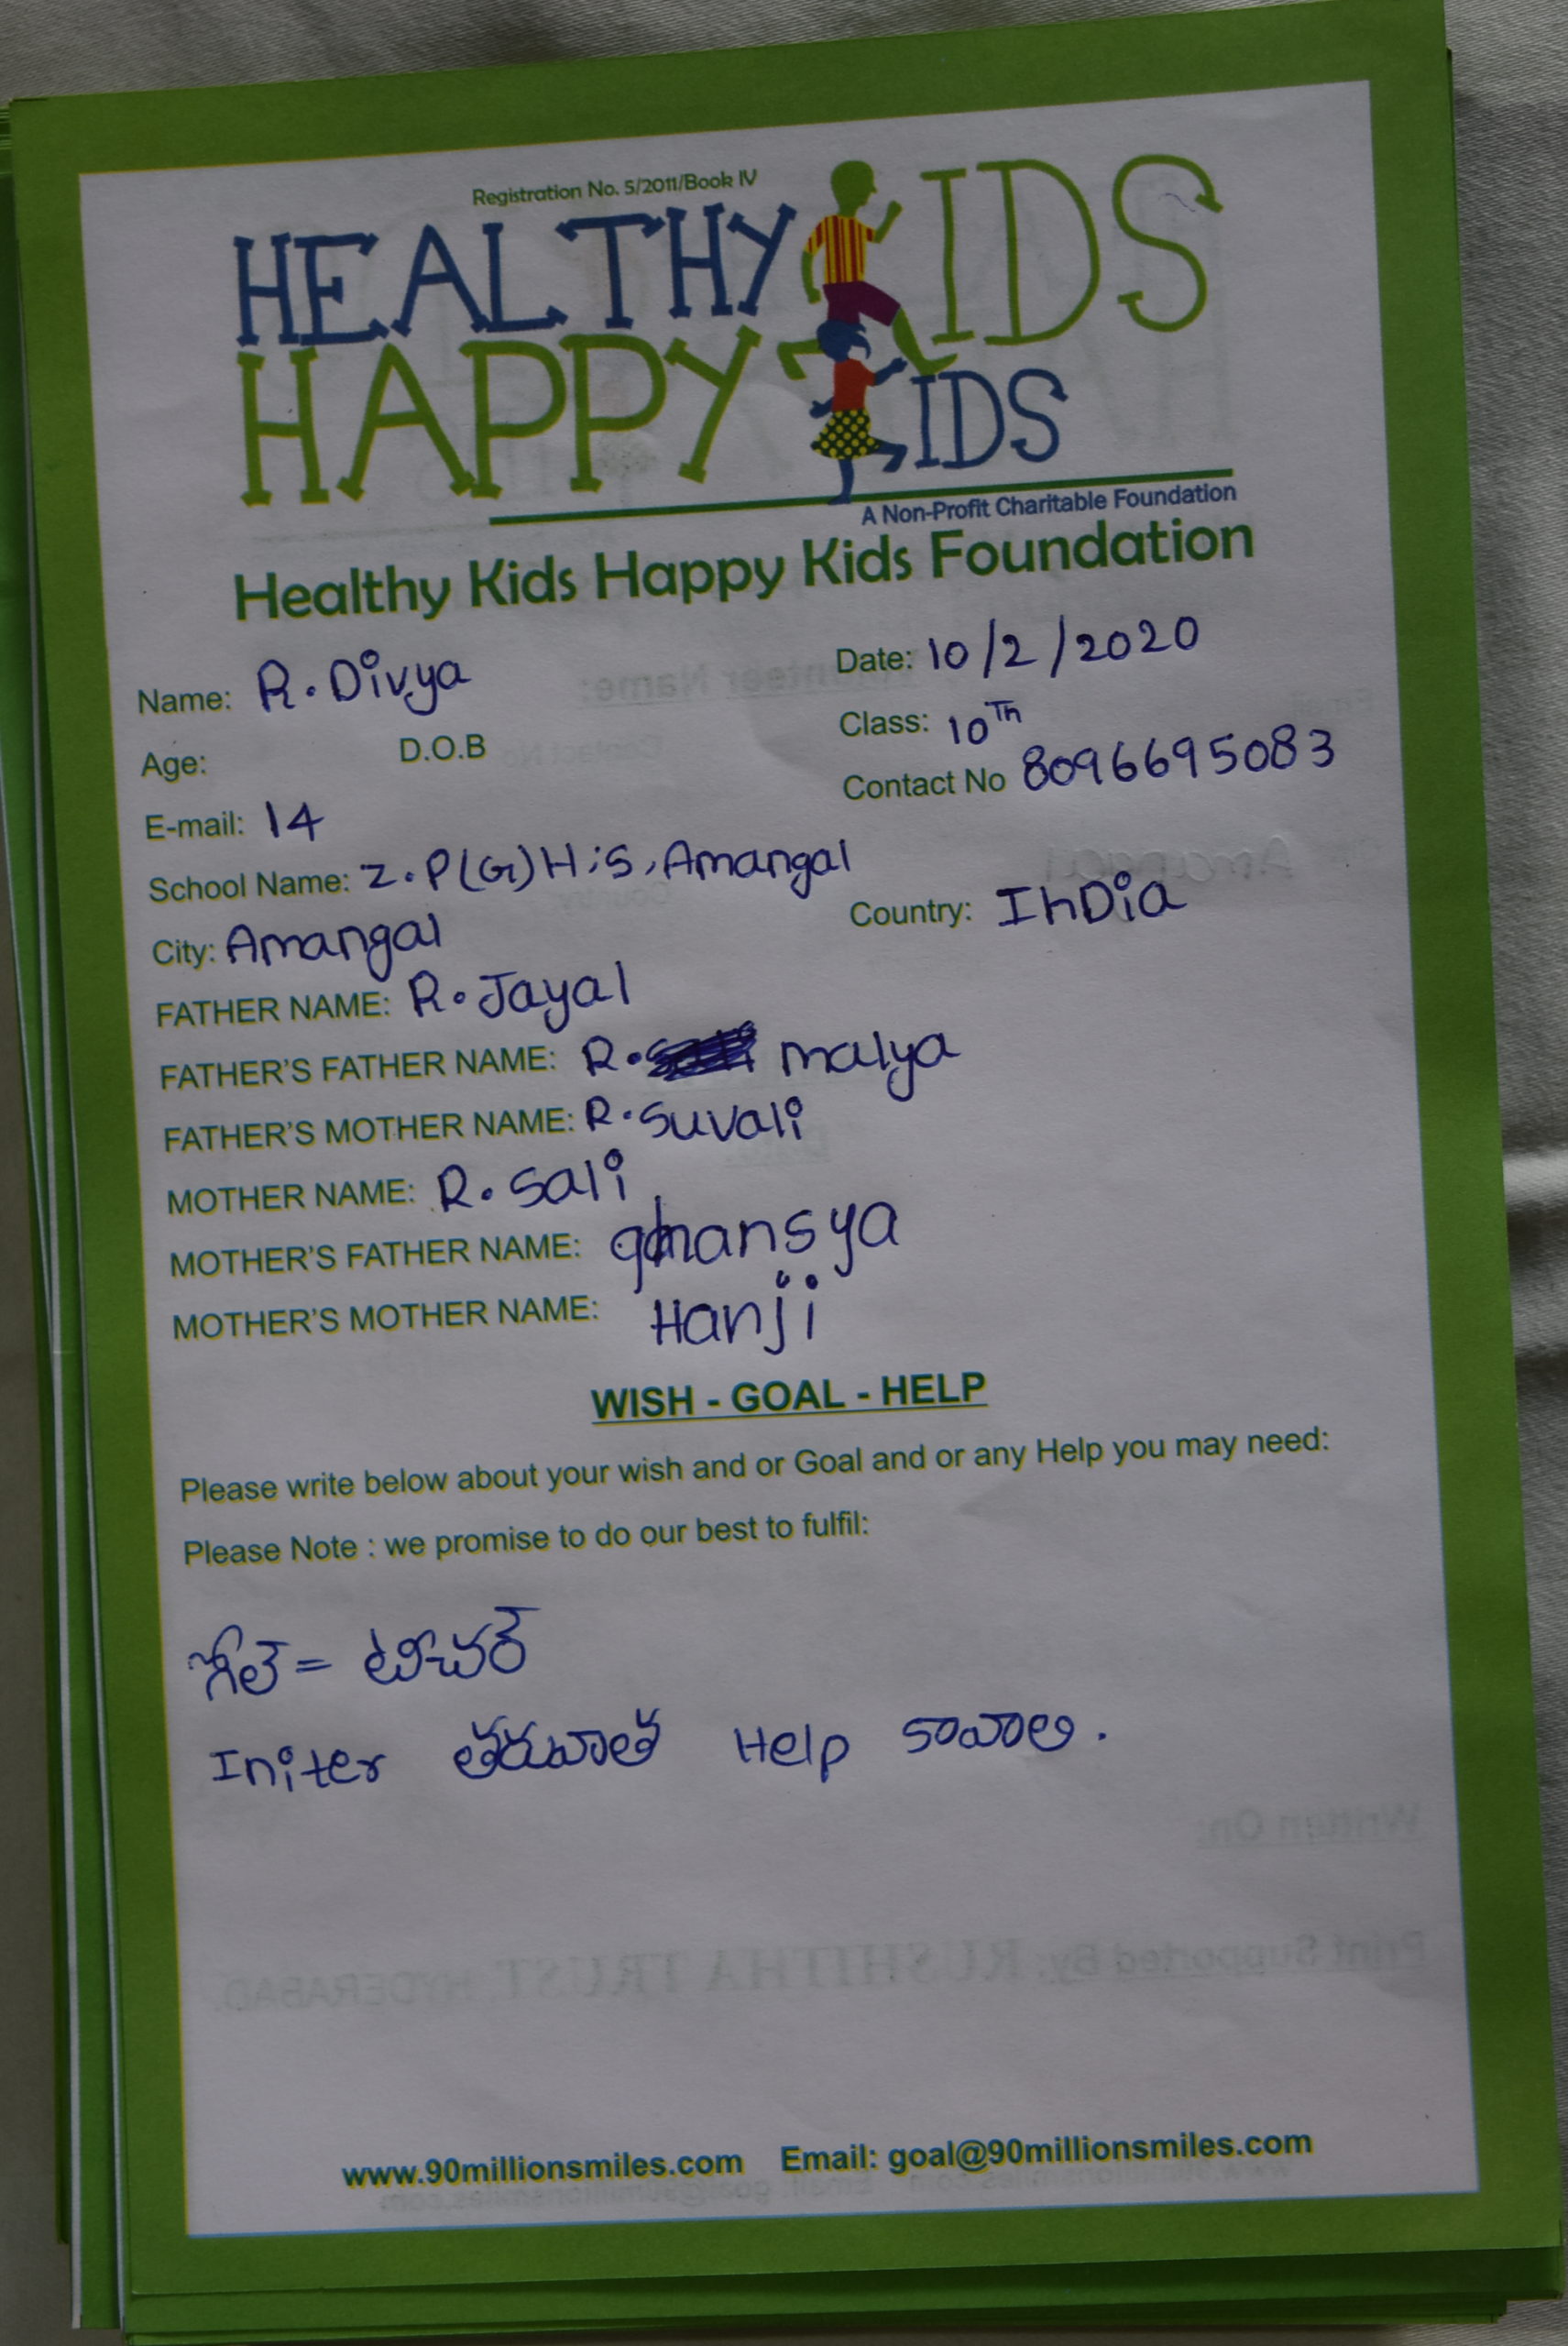 Registration No. 5/2011/Book IV
HEALTHY KIDS
HAPPY KIDS
A Non-Profit Charitable Foundation
Healthy Kids Happy Kids Foundation
Name: R. Divya Date: 10/2/2020
Age: D.O.B Class: 10Th
E-mail: 14 Contact No 8096695083
School Name: Z.P(G)H.S, Amangal
City: Amangal Country: InDia
FATHER NAME: R. Jayal
FATHER'S FATHER NAME: R. malya
FATHER'S MOTHER NAME: R. suvali
MOTHER NAME: R. sali
MOTHER'S FATHER NAME: ghansya
MOTHER'S MOTHER NAME: Hanji
WISH - GOAL - HELP
Please write below about your wish and or Goal and or any Help you may need:
Please Note : we promise to do our best to fulfil:
గోల్ = టీచర్
Initer తరువాత Help కావాలి.
Written On:
Print Supported By: RUSHITHA TRUST, HYDERABAD.
www.90millionsmiles.com Email: goal@90millionsmiles.com